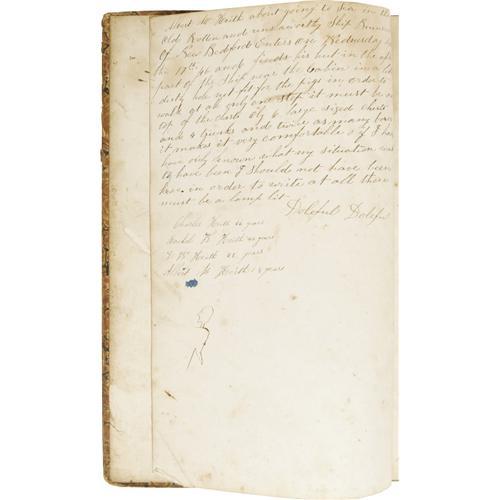 Albert W Heith about going to Sea in
Old Rotten and unseaworthy Ship
Of New Bedford Enters on Wednesday
the 17th and finds his hut in the
part of the ship near the Cabin in a
dirty hole not fit for the pigs in order to
walk at all only one step it must be
top of the desk by 6 large sized chests
and 4 trunks and twice as many
it makes it very comfortable if I
have only known what my situation was
to have been I should not have been
here in order to write at all there
must be a lamp lit
Doleful Doleful
Charles Heith years
W Heith years
W Heith 22 years
Albert W Heith years